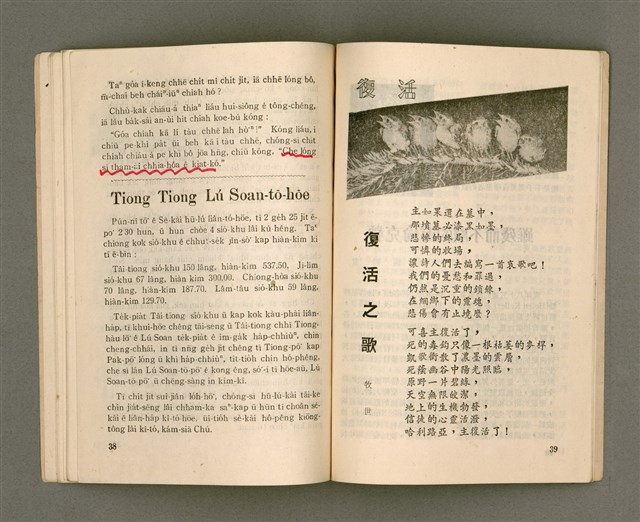 Taⁿ góa í-keng chhē chi̍t mî chi̍t ji̍t, iā chhē lóng bô,
m̄-chai beh cháiⁿ-iūⁿ chiah hó?
Chhù-kak chiáu-á thiaⁿ liáu hui-siông ê tông-chêng,
iā lâu ba̍k-sái an-úi hit chiah koe-bú kóng:
"Góa chiah kā lí tàu chhē lah hò͘ⁿ!" Kóng liáu, i
chiū pe khì pa̍t ūi beh kā i tàu chhē, chóng-sī chit
chiah chiáu á pe khì bô jōa hn̄g, chiū kóng, "Che lóng
sī tham-cî chhia-hôa ê kiat-kó."
Tiong Tiong Lú Soan-tō-hōe
Pún-nî tō͘ ê Sè-kài hū-lú liân-tò-hōe, tī 2 ge̍h 25 ji̍t ē-
po͘ 2:30 hun, ū hun chòe 4 sió-khu lâi kú hêng. Taⁿ
chiong kok sió-khu ê chhut-se̍k jîn-sò͘ kap hiàn-kim kì
tī ē-bīn:
Tâi-tiong sió-khu 150 lâng, hiàn-kim 537.50, Ji-lîm
sió-khu 67 lâng, hiàn-kim 300.00. Chiong-hòa sió-khu
70 lâng, hiàn-kim 187.70. Lâm-tâu sió-khu 59 lâng,
hiàn-kim 129.70.
Te̍k-pia̍t Tâi-tiong sió-khu ū kap kok kàu-phài liân-
ha̍p, tī khui-hōe chêng tāi-seng ū Tâi-tiong chhī Tiong-
hàu-lō͘ ê Lú Soan te̍k-pia̍t ê im-ga̍k ha̍p-chhiùⁿ, chin
cheng-chhái, in tī nn̄g ge̍h ji̍t chêng tī Tiong-pō͘ kap
Pak-pō͘ lóng ū khì ha̍p-chhiùⁿ, tit-tio̍h chin hó-phêng,
che sī lán Lú Soan-tō-pō͘ ê kong êng, só͘-í tī hōe-āu, Lú
Soan-tō-pō͘ ū chêng-sàng in kim-kî.
Tī chit ji̍t suî-jiân lo̍h-hō͘, chóng-sī hū-lú-kài tāi-ke
chin jia̍t-sêng lâi chham-ka saⁿ-kap ū hūn tī choân sè-
kài ê liân-ha̍p kî-tó-hōe, ūi-tio̍h sè-kài hô-pêng kiōng-
tông lâi kî-tó, kám-siā Chú.
38
復活
復活之歌
牧世
主如果還在墓中，
那墳墓必漆黑如墨，
悲慘的終局，
可憐的牧場，
讓詩人們去編寫一首哀歌吧！
我們的憂愁和罪過，
仍然是沉重的鎖鍊，
在綑鄉下的靈魂，
悲傷會有止境麼？
可喜主復活了，
死的毒鈎只像一根枯萎的麥桿，
凱歌衝散了濃墨的雲層，
死蔭幽谷中陽光照臨，
原野一片碧綠，
天空無限皎潔，
地上的生機勃發，
信徒的心靈活潑，
哈利路亞，主復活了！
39